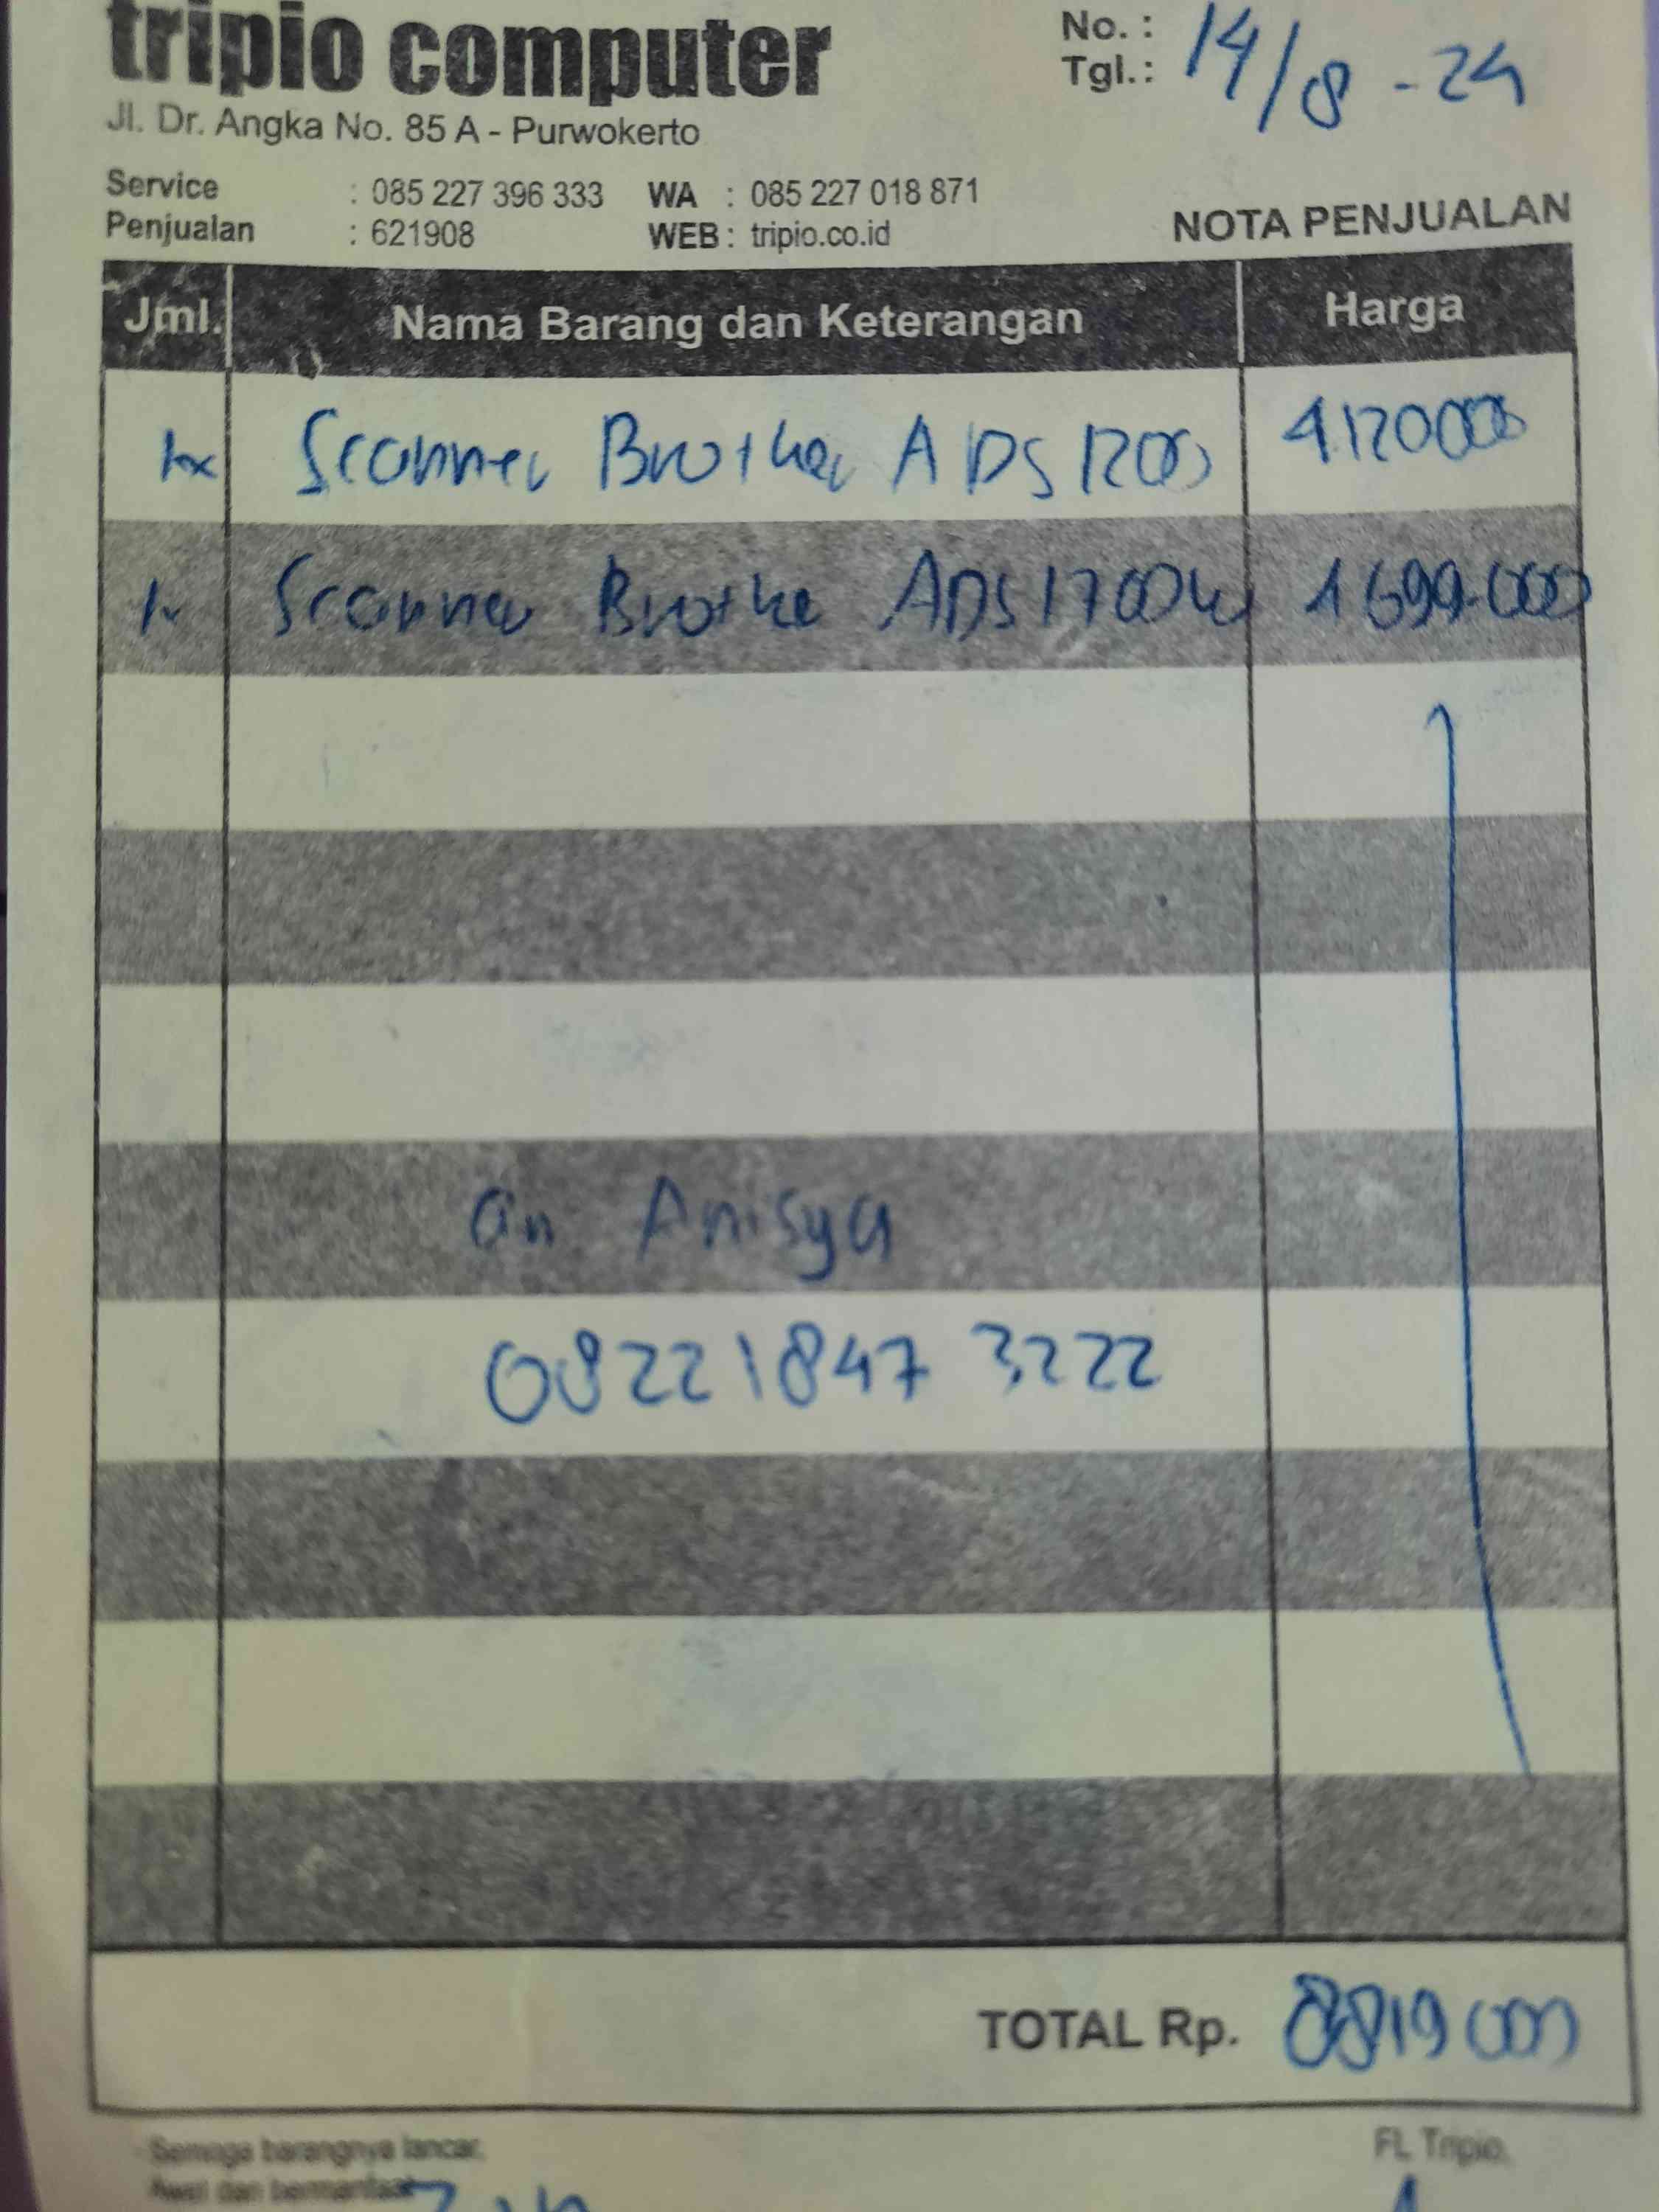 tripio computer
Jl. Dr. Angka No. 85 A - Purwokerto
No. :
Tgl.: 14/8 - 24
Service : 085 227 396 333 WA : 085 227 018 871
Penjualan : 621908 WEB : tripio.co.id
NOTA PENJUALAN
Jml. Nama Barang dan Keterangan Harga
1x Scanner Brother ADS 1200 4120000
1x Scanner Brother ADS 1700w 4699.000
an Anisya
08221847 3222
TOTAL Rp. 8819000
Semoga barangnya lancar,
Awet dan bermanfaat
Ft. Tripio,